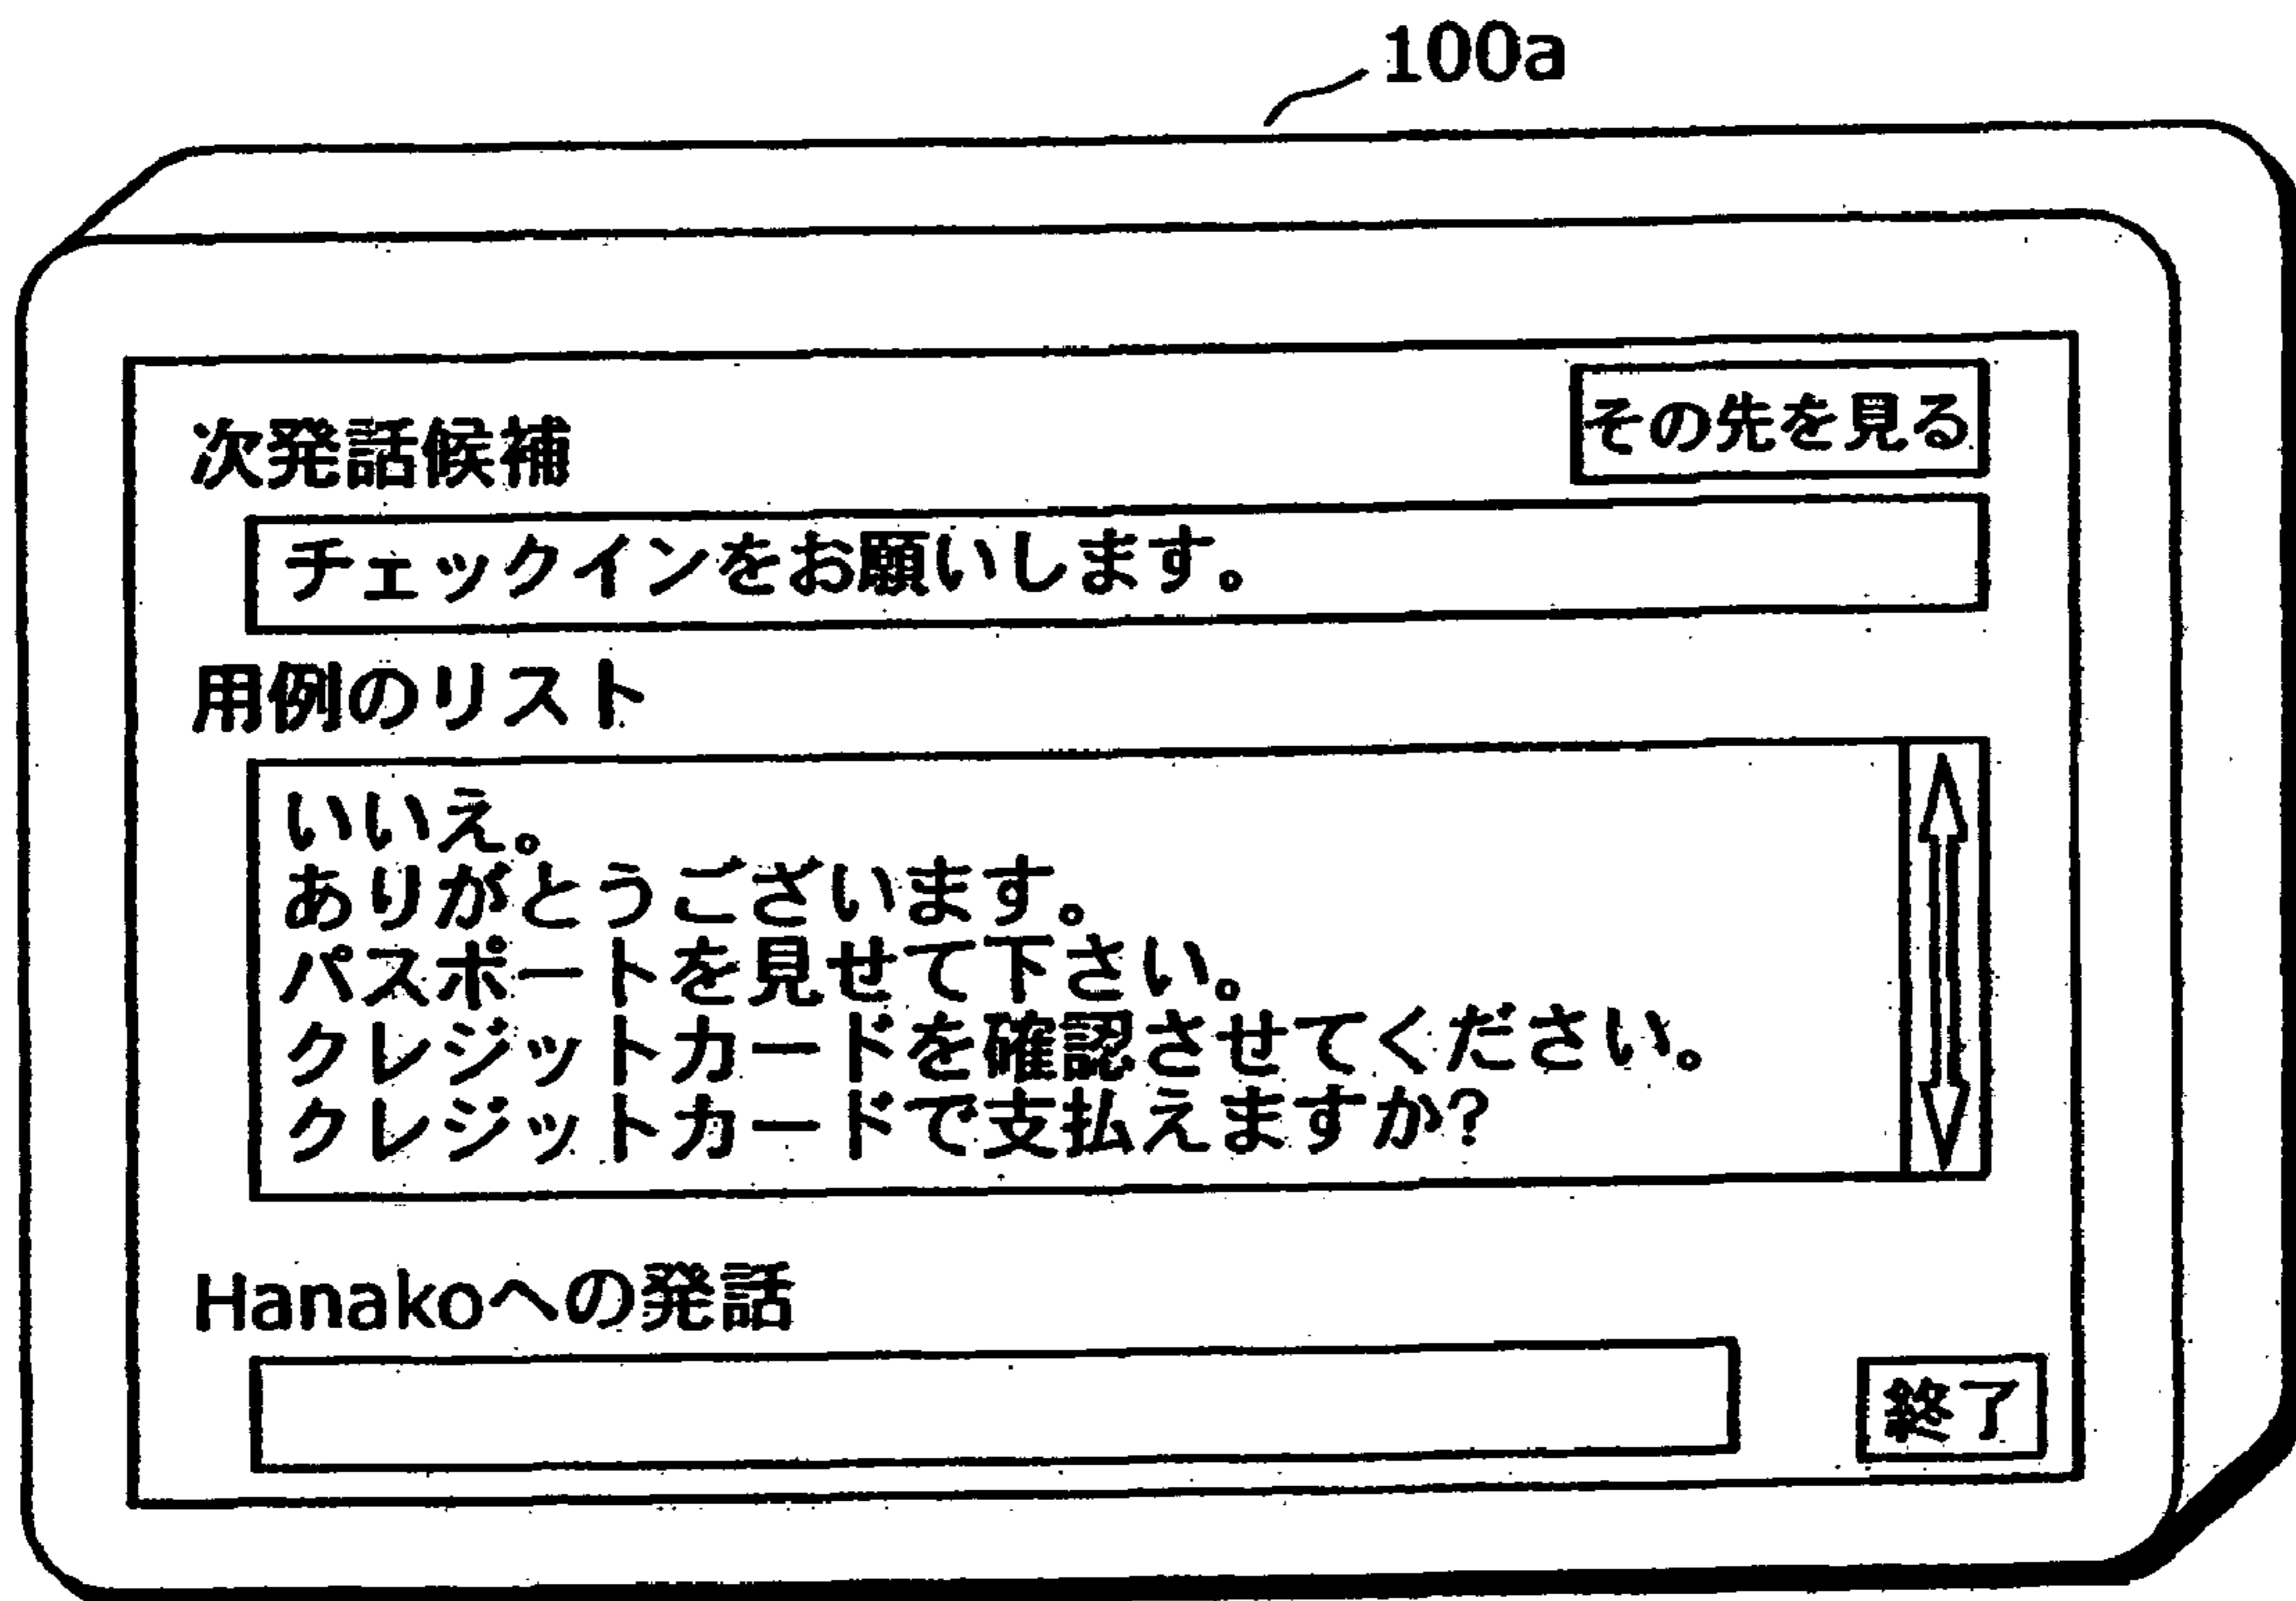 100a
その先を見る
次発話候補
チェックインをお願いします。
用例のリスト
いいえ。
ありがとうございます。
パスポートを見せて下さい。
クレジットカードを確認させてください。
クレジットカードで支払えますか?
Hanakoへの発話
終了